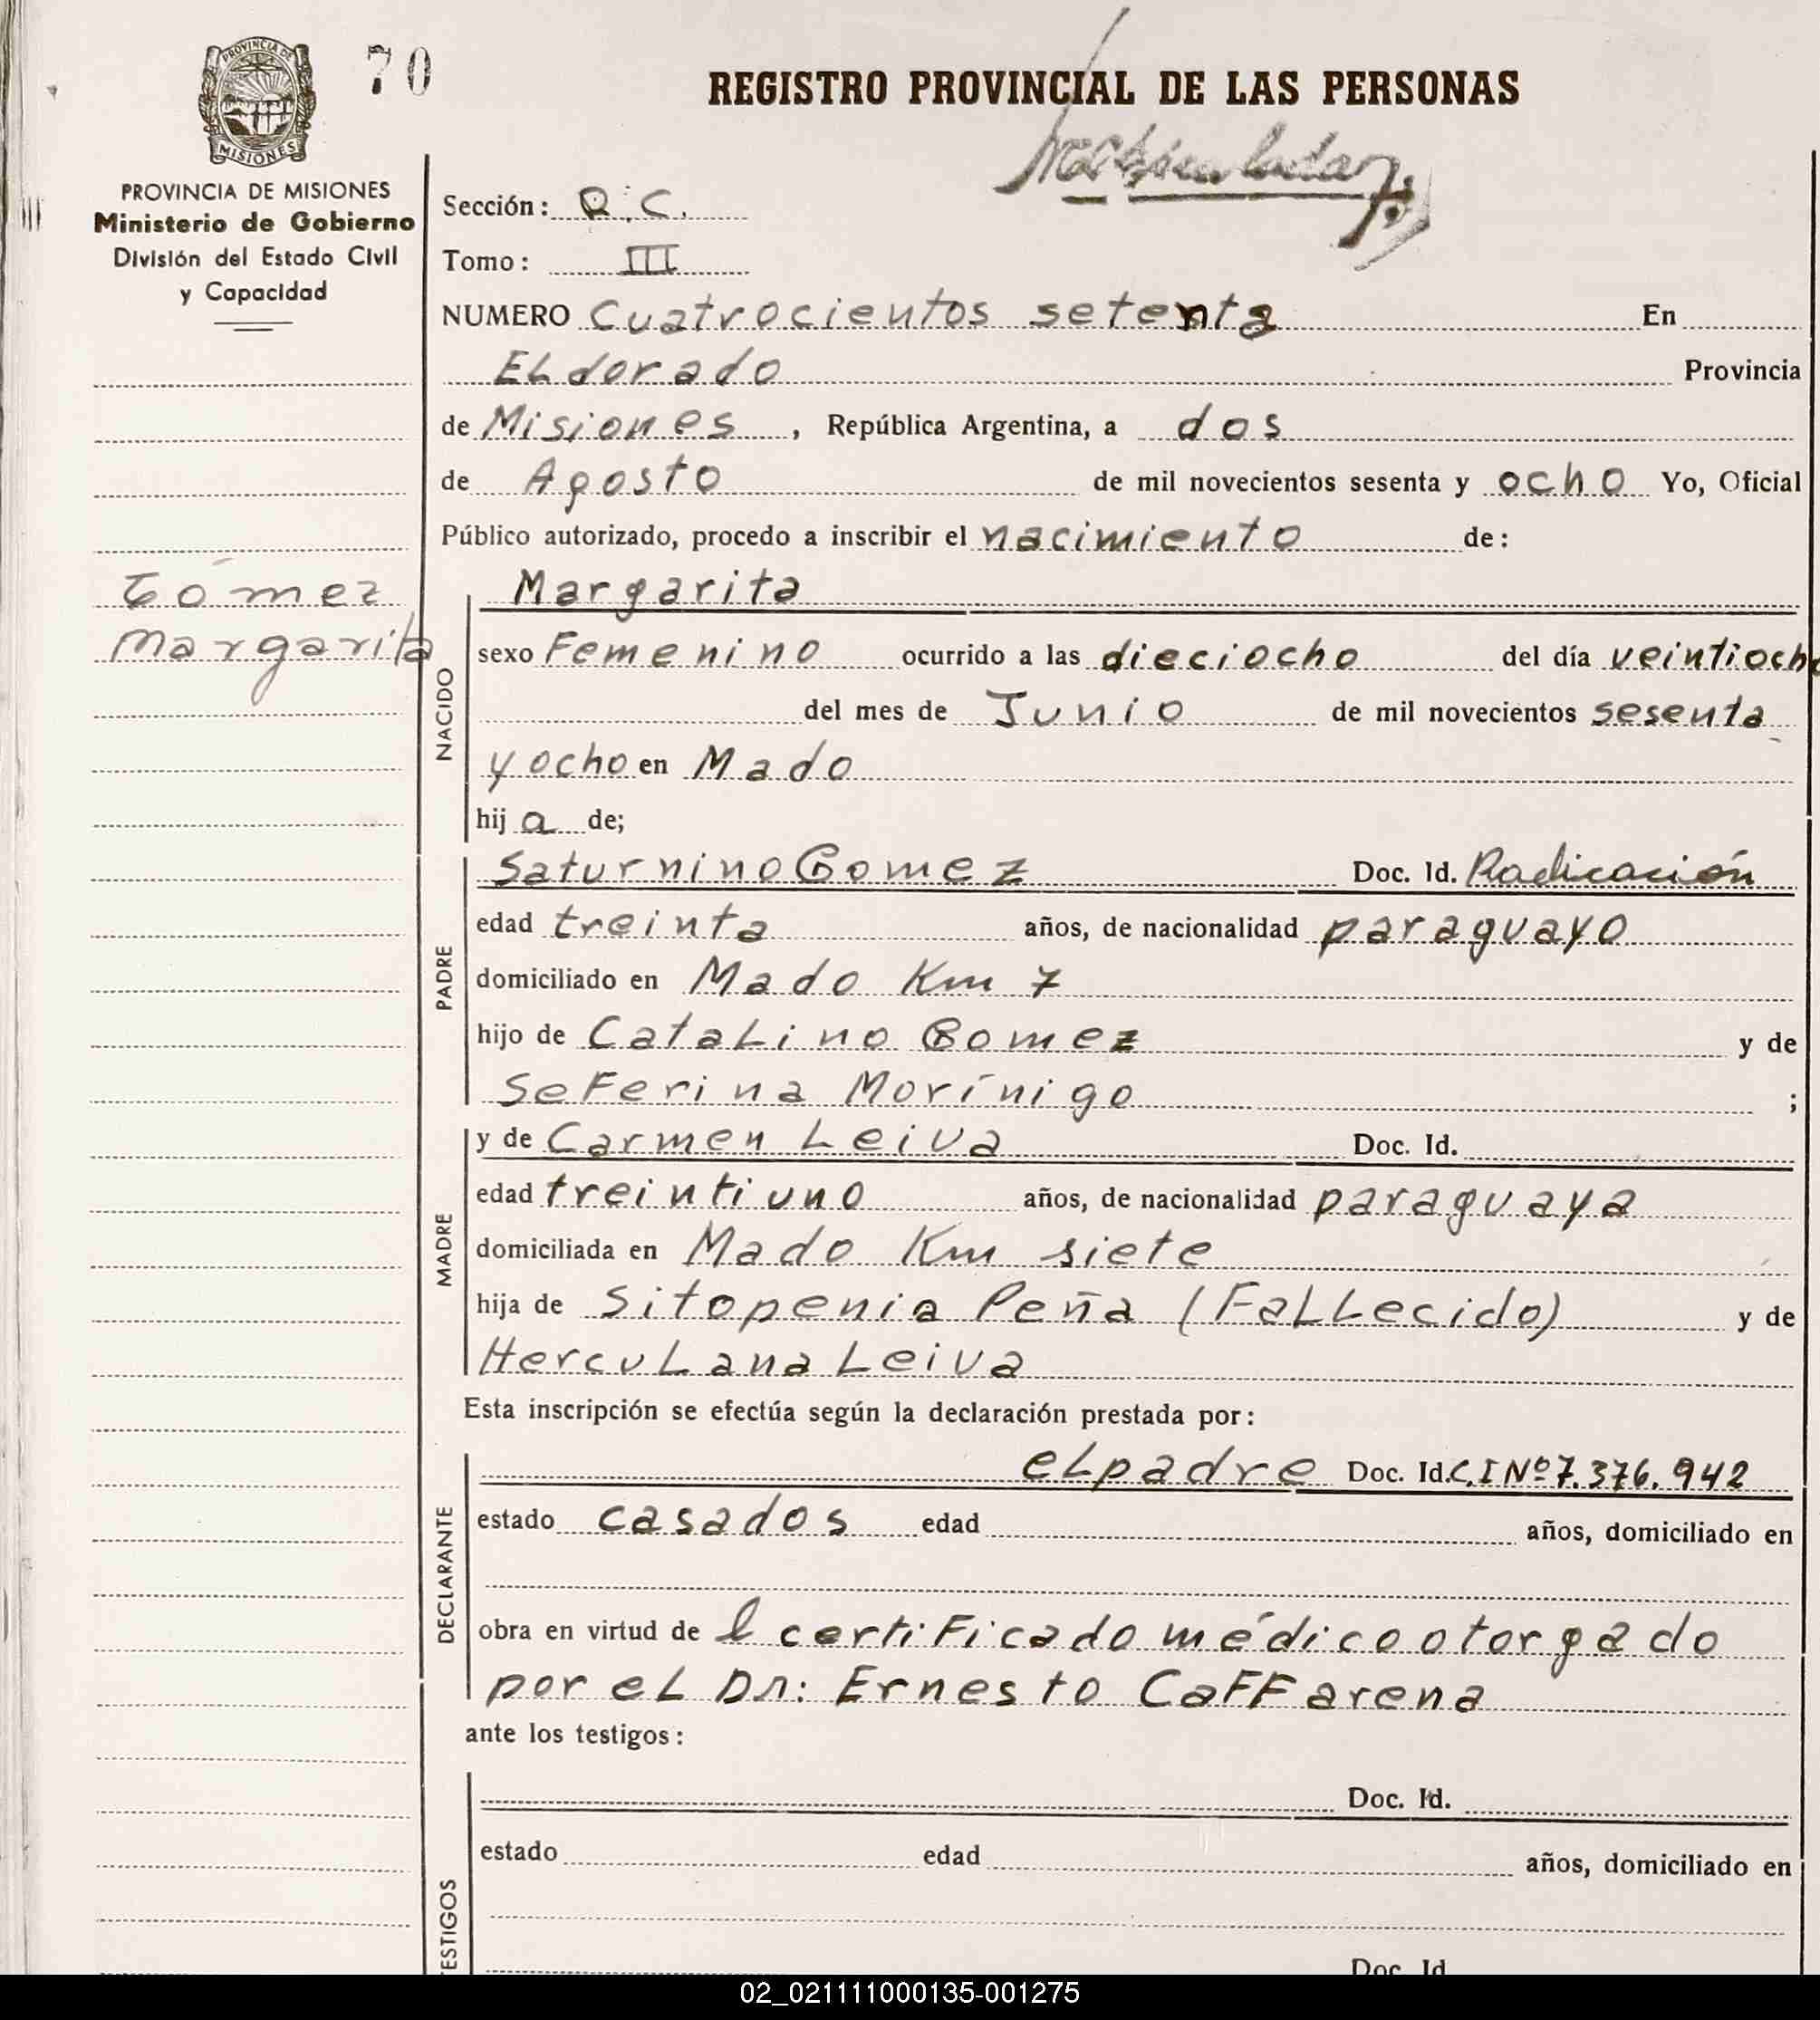 70
REGISTRO PROVINCIAL DE LAS PERSONAS
PROVINCIA DE
MISIONES
PROVINCIA DE MISIONES
Ministerio de Gobierno
División del Estado Civil
y Capacidad
Gómez
Margarita
Sección: R.C.
Tomo: III
NUMERO Cuatrocientos setenta En
ELdorado Provincia
de Misiones, República Argentina, a dos
de Agosto de mil novecientos sesenta y ocho Yo, Oficial
Público autorizado, procedo a inscribir el nacimiento de:
NACIDO
Margarita
sexo Femenino ocurrido a las dieciocho del día veintiocho
del mes de Junio de mil novecientos sesenta
y ocho en Mado
hija de;
PADRE
Saturnino Gomez Doc. Id. Radicación
edad treinta años, de nacionalidad paraguayo
domiciliado en Mado Km 7
hijo de CataLino Gomez y de
SeFerina Morínigo ;
MADRE
y de Carmen Leiva Doc. Id.
edad treintiuno años, de nacionalidad paraguaya
domiciliada en Mado Km siete
hija de Sitopenia Peña (FaLLecido) y de
HercuLana Leiva
Esta inscripción se efectúa según la declaración prestada por:
DECLARANTE
eL padre Doc. Id. C.I Nº 7.376.942
estado casados edad años, domiciliado en
obra en virtud de l certiFicado médico otorgado
por eL Dr: Ernesto CaFFarena
ante los testigos:
TESTIGOS
Doc. Id.
estado edad años, domiciliado en
Doc. Id
02_021111000135-001275